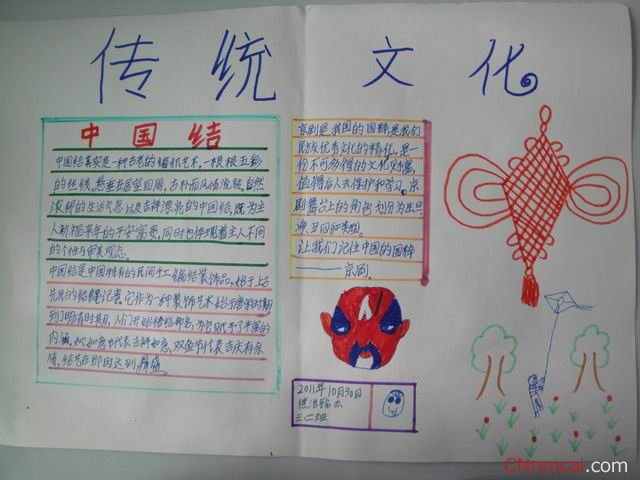 传统文化
中国结
中国结真实是一种古老的编织艺术,一根根五彩
的丝线,悬垂在居室四周,古朴而风情流转,自然
浓郁的生活气息以及吉祥漂亮的中国结,既为主
人祈福来年的平安富贵,同时也体现着主人不同
的个性与审美观念。
中国结是中国特有的民间手工编结装饰品,始于上古
先民的结绳记事。它作为一种装饰艺术始于唐宋时期
到了明清时期,人们开始给结命名,为它赋予了丰富的
内涵,如如意节代表吉祥如意,双鱼节代表吉庆有余
情,结艺在那时达到鼎盛。
京剧是我国的国粹,是我们
民族优秀文化的精化,是一
份不可多得的文化财富,
值得后人去保护和学习。京
剧舞台上的角色划分为生旦
净丑四种类型。
让我们记住中国的国粹
——京剧。
2011年10月30日
三二班
CNrencai.com